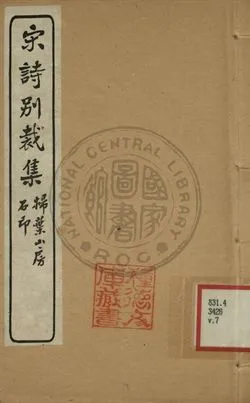 宋詩別裁集
掃葉山房
石印
NATIONAL CENTRAL LIBRARY
國家圖書館
R.O.C
831.4
3426
v.7